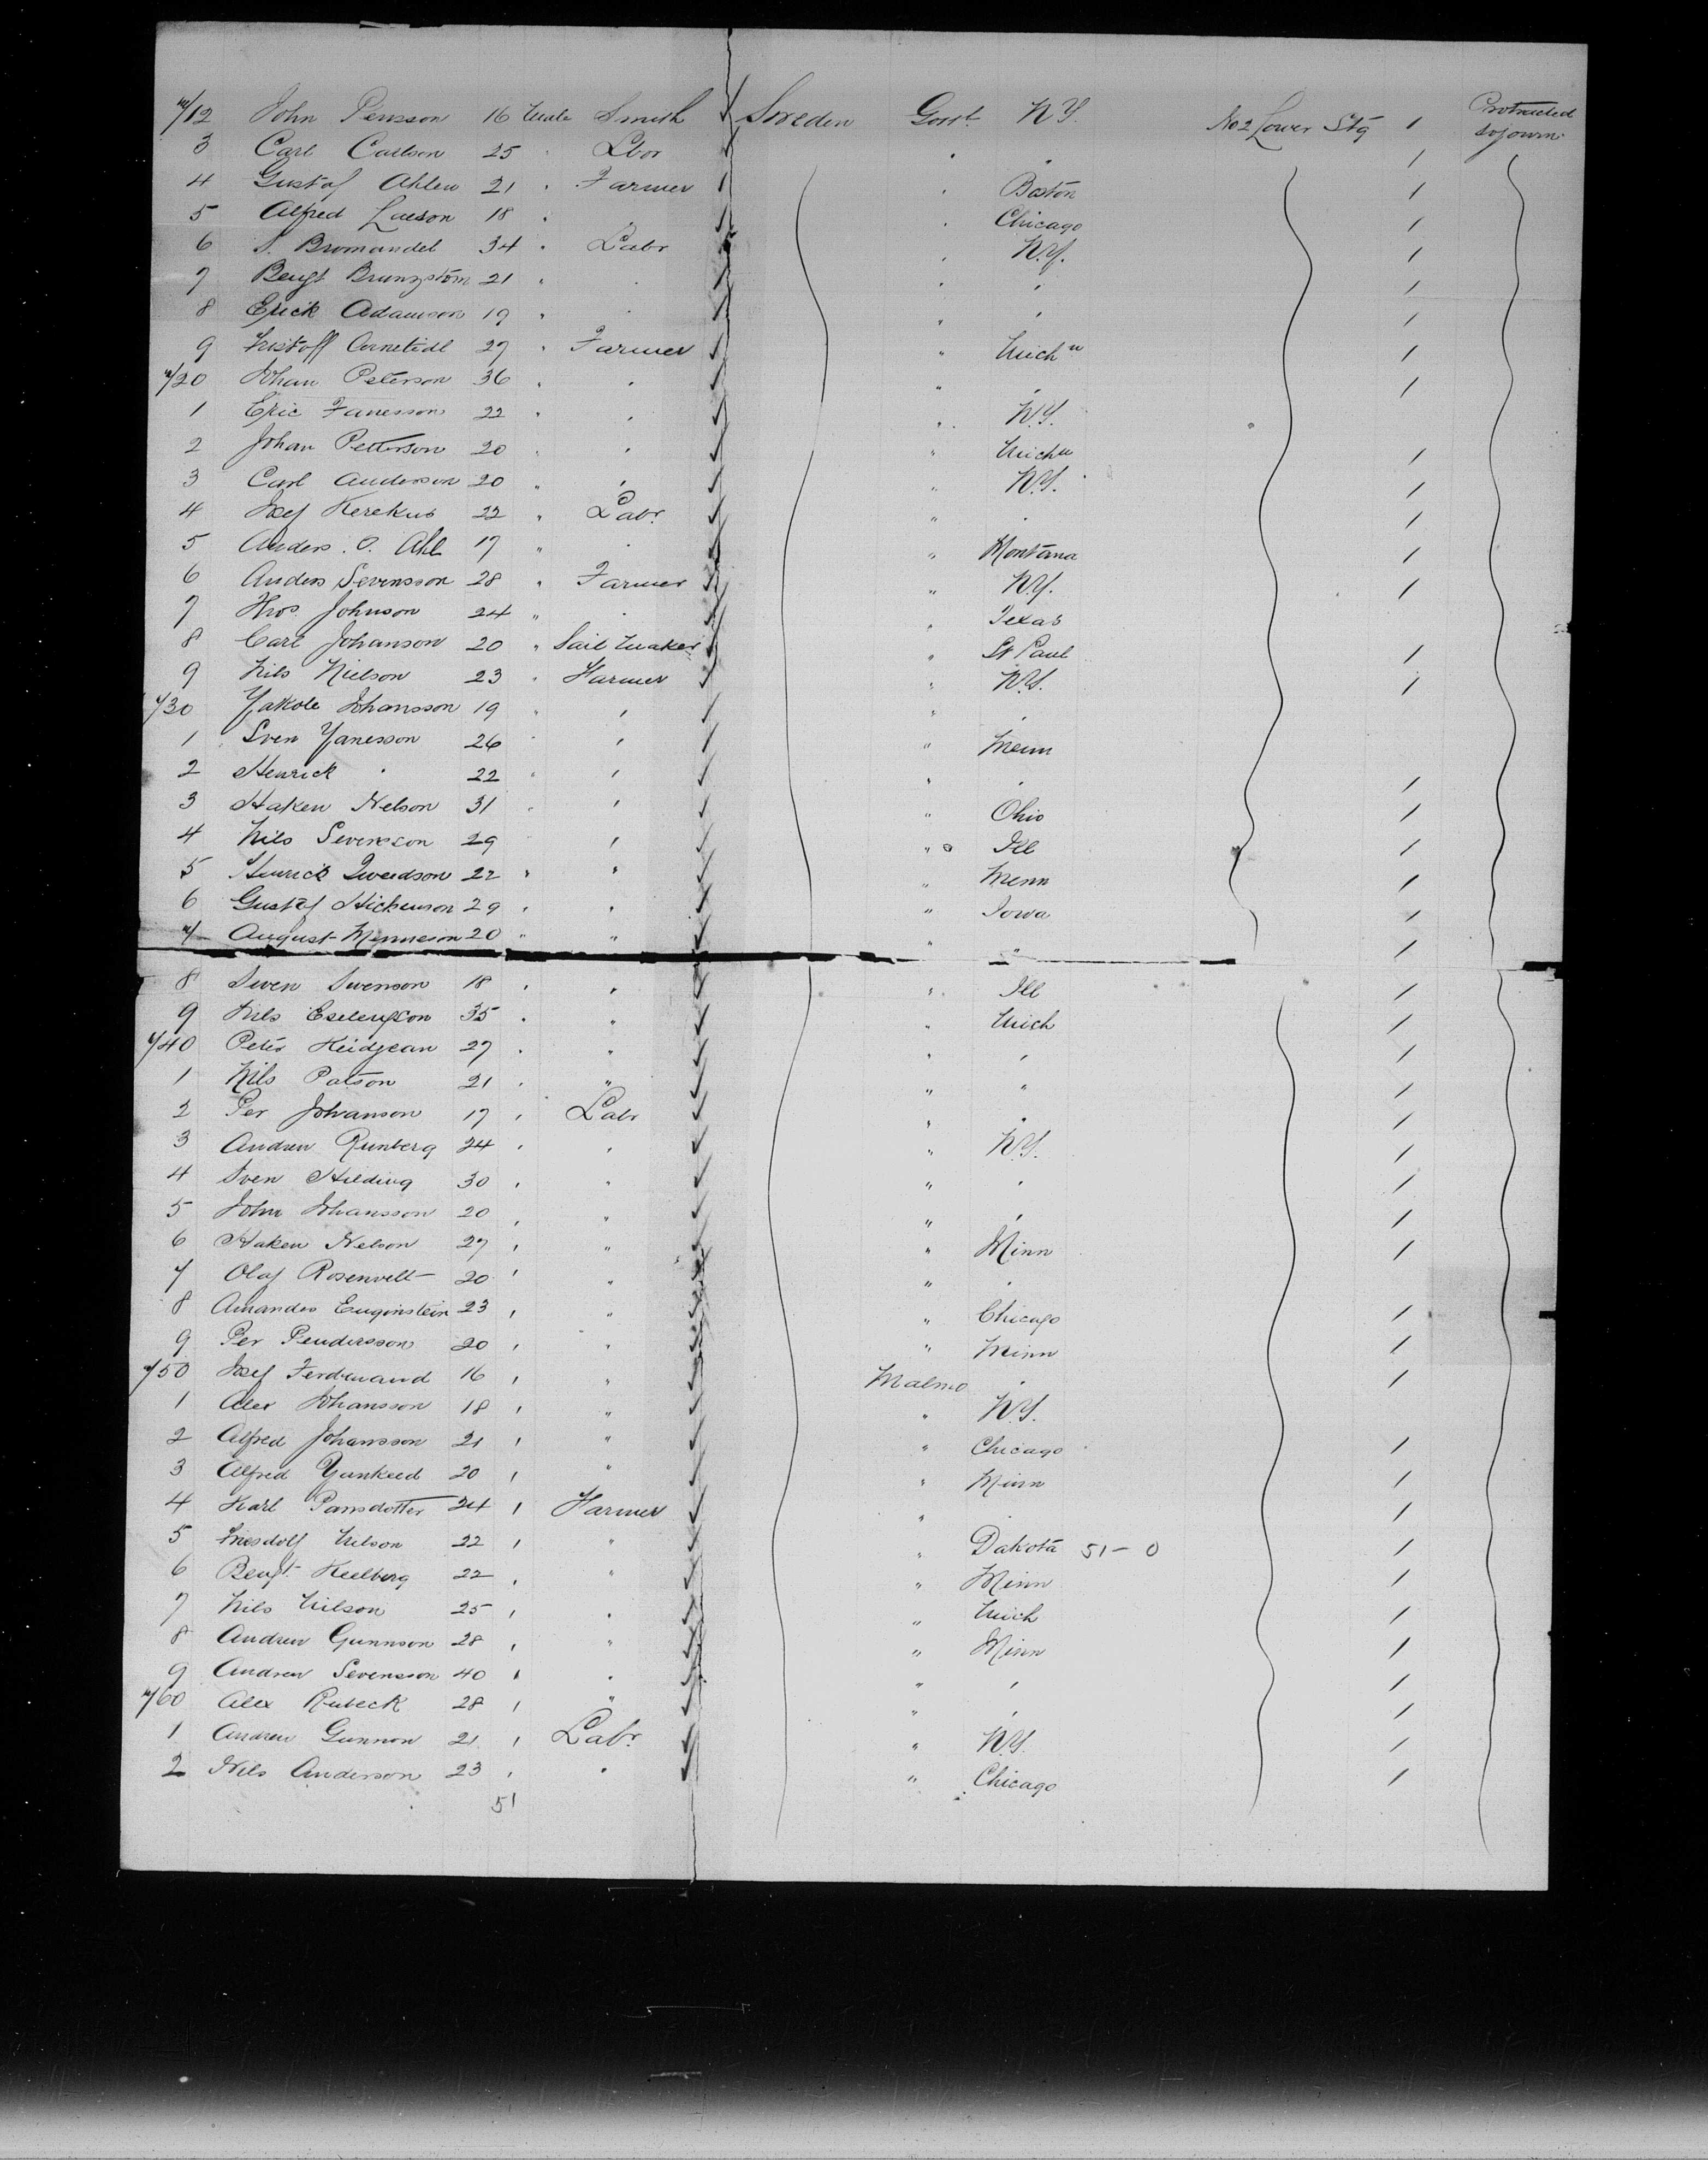 4/12 John Persson 16 Male Smith Sweden Gott. N.Y. No 2 Lower Stg 1 Protracted sojourn
3 Carl Carlson 25 " Lbor " " 1
4 Gustaf Ahlen 21 " Farmer " Boston 1
5 Alfred Larson 18 " " " Chicago 1
6 S. Bromandel 34 " Labr " N.Y. 1
7 Bengt 21 " " " " 1
8 Erick Adamson 19 " " " " 1
9 27 " Farmer " Mich 1
4/20 Johan Peterson 36 " " " " 1
1 Eric 22 " " " N.Y.
2 Johan Petterson 20 " " " Mich 1
3 Carl Anderson 20 " " " N.Y. 1
4 Josef Kerekus 22 " Labr. " " 1
5 Anders. O. Ahl 17 " " " Montana 1
6 Anders Sevensson 28 " Farmer " N.Y. 1
7 Johnson 24 " " " Texas
8 Carl Johanson 20 " Sail Maker " St Paul 1
9 Nils Nielson 23 " Farmer " N.Y. 1
4/30 Yakob Johansson 19 " " " "
1 Sven Yanesson 26 " " " Menn
2 Henrick " 22 " " " " 1
3 Haken Nelson 31 " " " Ohio 1
4 Nils Sevenson 29 " " " Ill 1
5 Henrick 22 " " " Menn 1
6 Gustaf 29 " " " Iowa 1
7 August 20 " " " " 1
8 Swen Swenson 18 " " " Ill 1
9 Nils 35 " " " Mich 1
4/40 Peter 27 " " " " 1
1 Nils Patson 21 " " " " 1
2 Per Johanson 17 " Labr " " 1
3 Andrew Runberg 24 " " " N.Y. 1
4 Sven Hilding 30 " " " " 1
5 John Johansson 20 " " " " 1
6 Haken Nelson 27 " " " Minn 1
7 Olaf Rosenvelt 20 " " " "
8 Amandes Euginstein 23 " " " Chicago 1
9 Per Pendersson 20 " " " Minn 1
4/50 Josef Ferdinand 16 " " Malmo " 1
1 Alex Johansson 18 " " " N.Y.
2 Alfred Johansson 21 " " " Chicago 1
3 Alfred Yunkeed 20 " " " Minn 1
4 Karl Pansdotter 24 " Farmer " " 1
5 Nilson 22 " " " Dakota 51-0 1
6 Bengt Keelberg 22 " " " Minn 1
7 Nils Nilson 25 " " " Mich 1
8 Andrew Gunnson 28 " " " Minn 1
9 Andrew Sevensson 40 " " " " 1
4/60 Alex Rubeck 28 " " " " 1
1 Andrew Gunnon 21 " Labr. " N.Y. 1
2 Nils Anderson 23 " " " Chicago 1
51